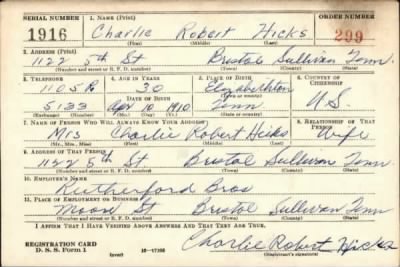 SERIAL NUMBER 1. NAME (Print) ORDER NUMBER
1916 Charlie Robert Hicks 299
(First) (Middle) (Last)
2. ADDRESS (Print)
1122 5th St Bristol Sullivan Tenn
(Number and street or R. F. D. number) (Town) (County) (State)
3. TELEPHONE 4. AGE IN YEARS 5. PLACE OF BIRTH 6. COUNTRY OF CITIZENSHIP
1105 R 30 Elizabethton
DATE OF BIRTH (Town or county)
5133 Apr 1910 Tenn U.S.
(Exchange) (Number) (Mo.) (Day) (Yr.) (State or country)
7. NAME OF PERSON WHO WILL ALWAYS KNOW YOUR ADDRESS 8. RELATIONSHIP OF THAT PERSON
Mrs Charlie Robert Hicks Wife
(Mr., Mrs., Miss) (First) (Middle) (Last)
9. ADDRESS OF THAT PERSON
1122 5th St Bristol Sullivan Tenn
(Number and street or R. F. D. number) (Town) (County) (State)
10. EMPLOYER'S NAME
Rutherford Bros
11. PLACE OF EMPLOYMENT OR BUSINESS
Moore St Bristol Sullivan Tenn
(Number and street or R. F. D. number) (Town) (County) (State)
I AFFIRM THAT I HAVE VERIFIED ABOVE ANSWERS AND THAT THEY ARE TRUE.
REGISTRATION CARD Charlie Robert Hicks
D. S. S. Form 1 (over) (Registrant's signature)